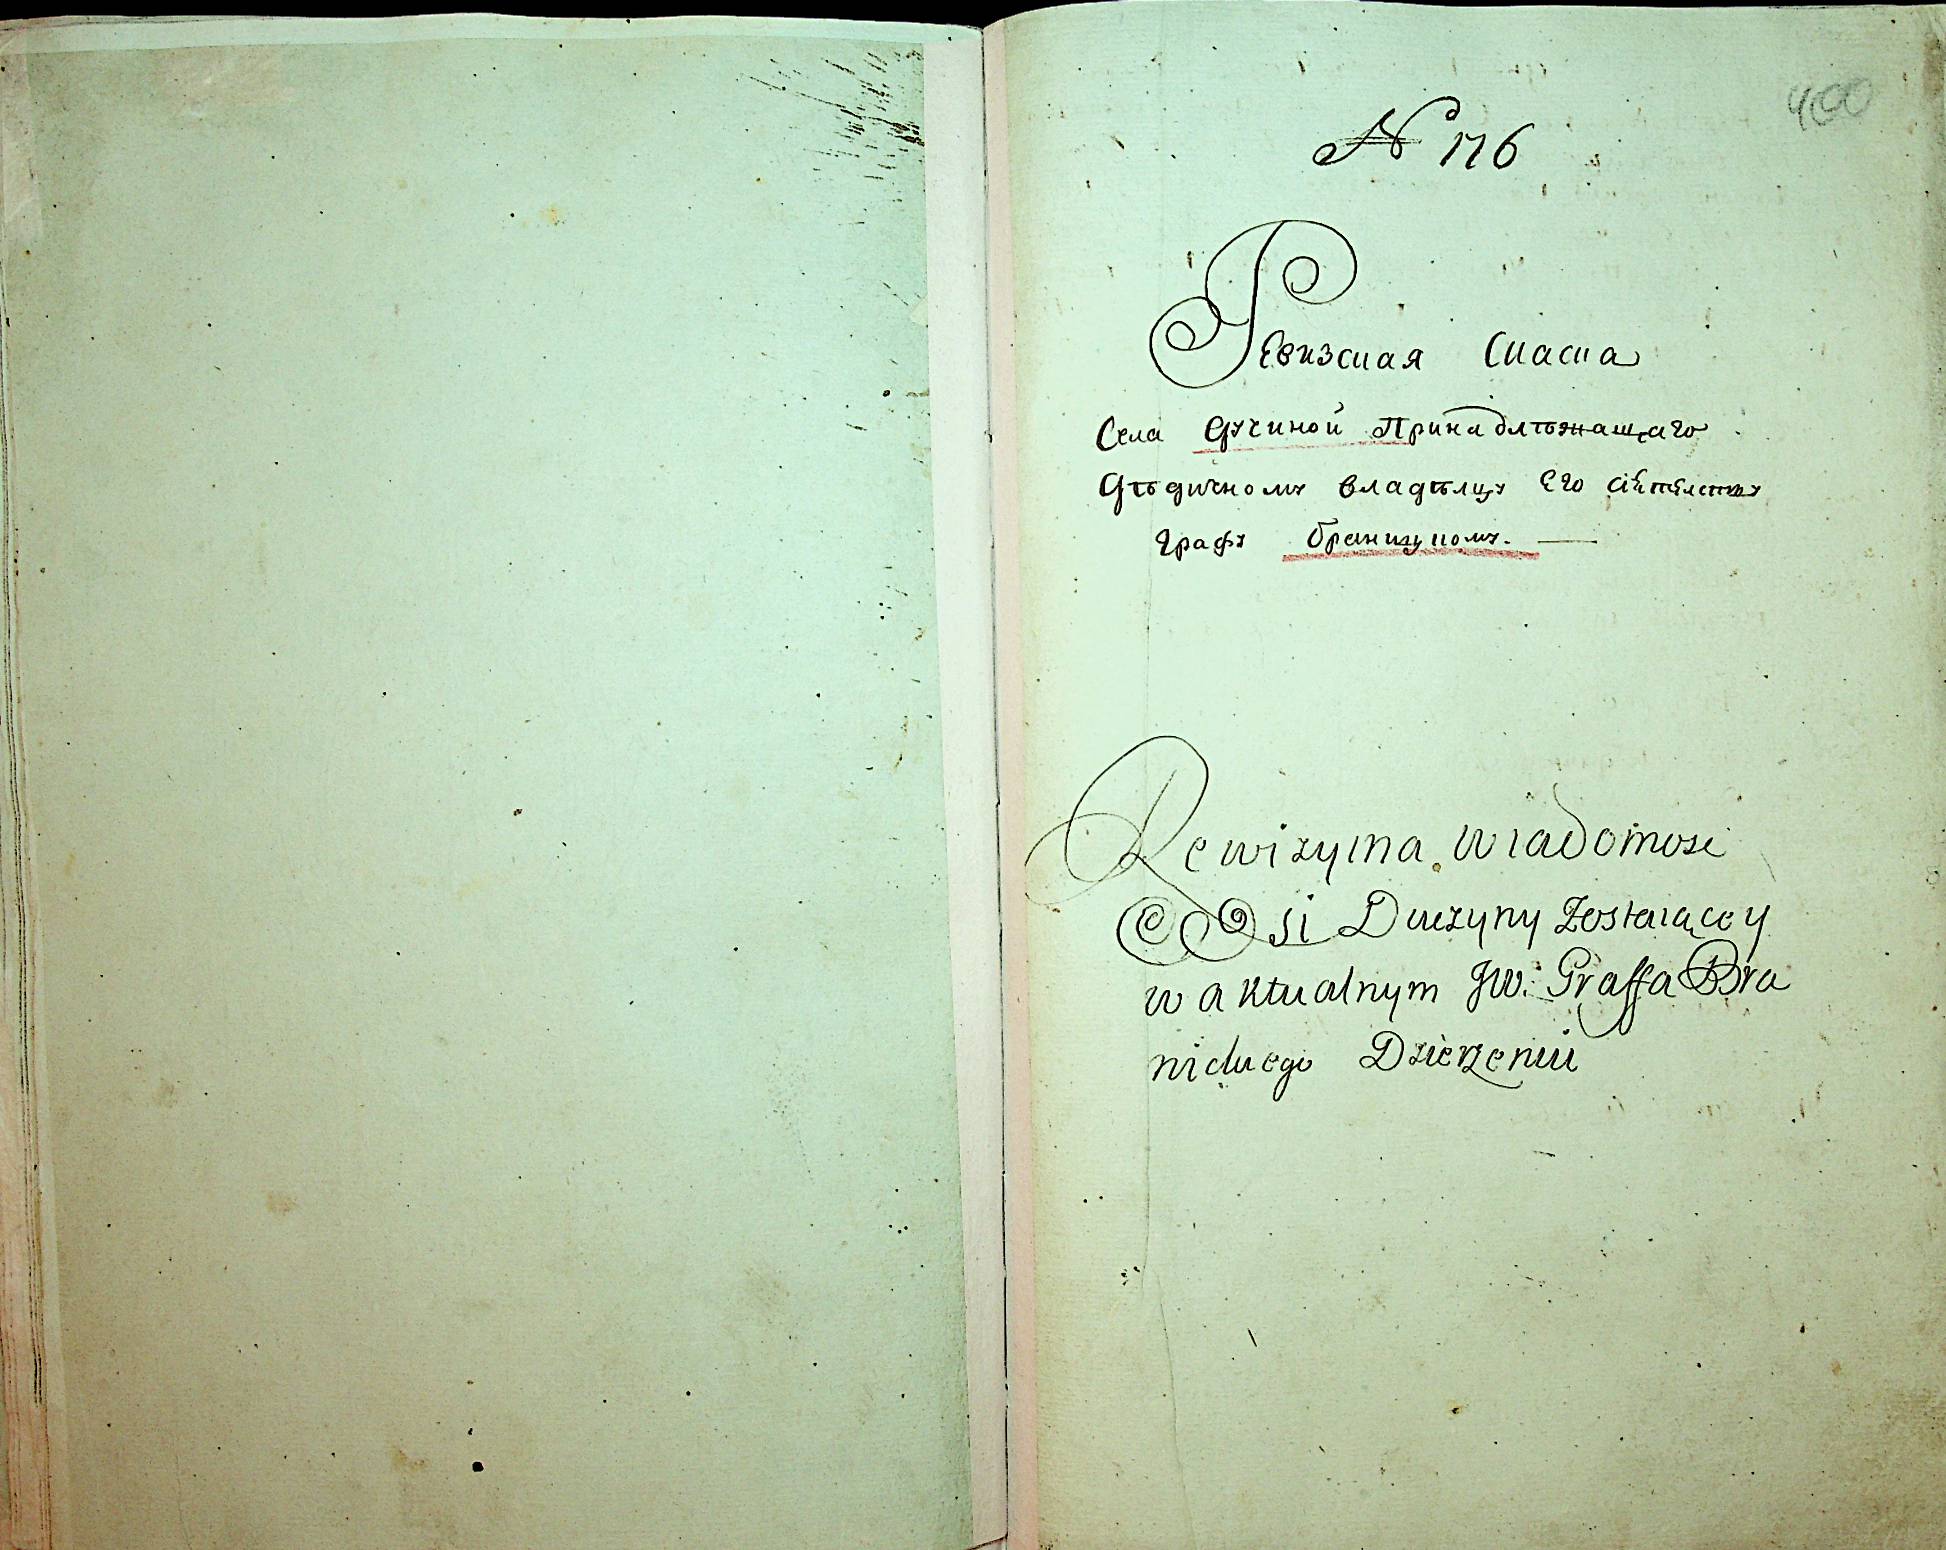 400
N 176
Ревизская Сказка
Села Дучиной Принадлѣжащаго
Дѣдичному владѣлцу Его
графу Браницкому.
Rewizyina Wiadomosć
Wsi Duczyny Zostaiącey
w aktualnym JW: Graffa Bra
nickiego Dzierżeniu